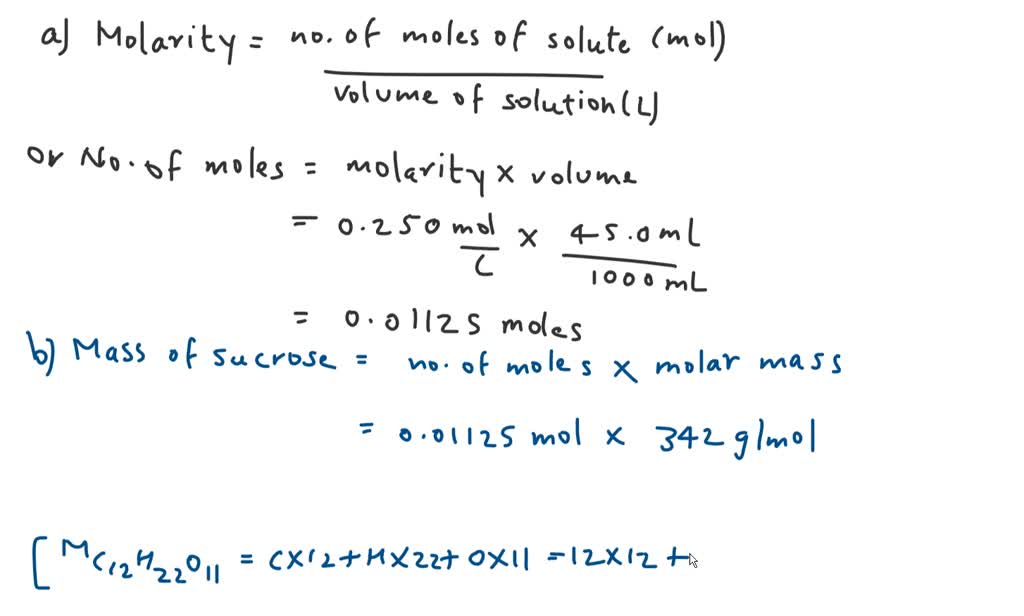 a) Molarity = no. of moles of solute (mol)
volume of solution (L)
or No. of moles = molarity × volume
= 0.250 mol/L × 45.0 mL/1000 mL
= 0.01125 moles
b) Mass of sucrose = no. of moles × molar mass
= 0.01125 mol × 342 g/mol
[ MC12H22O11 = C×12 + H×22 + O×11 = 12×12 +